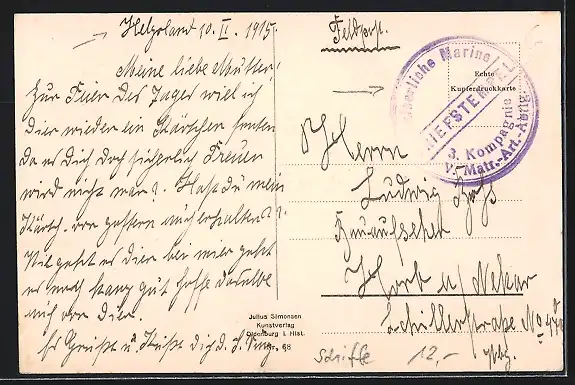 Helgoland 10. II. 1915.
Meine liebe Mutter!
Zur Feier des Tages will ich
Dir wieder ein Kärtchen senden
da es Dich doch sicherlich Freuen
wird nicht war? Hast Du mein
Kärtch. von gestern auch erhalten??
Wie geht es Dir bei mir geht
es noch ganz gut hoffe dasselbe
auch von Dir.
Es Grüßt u. Küßt dich d.
Feldpost.
Kaiserliche Marine
BRIEFSTEMPEL
3. Kompagnie
V. Matr.-Art.-Abtlg.
Echte
Kupferdruckkarte
Herrn
Ludwig
Bauaufseher
Horb a/ Nekar
Schillerstrasse No
Julius Simonsen
Kunstverlag
Oldenburg i. Hlst.
68
Schiffe 12,-